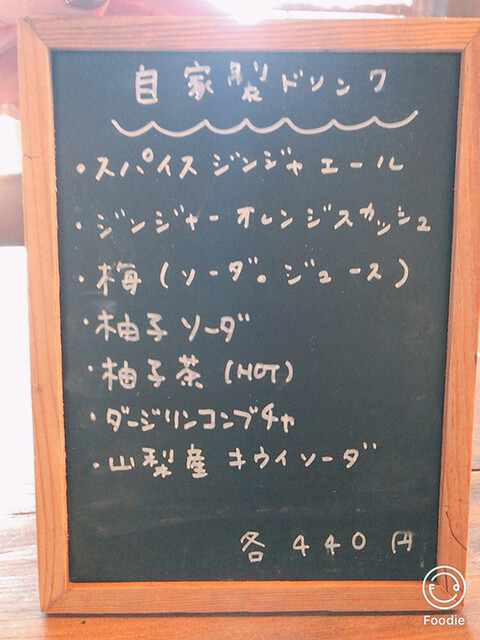 自家製ドリンク
・スパイスジンジャエール
・ジンジャーオレンジスカッシュ
・梅(ソーダ。ジュース)
・柚子ソーダ
・柚子茶(HOT)
・ダージリンコンブチャ
・山梨産キウイソーダ
各440円
Foodie